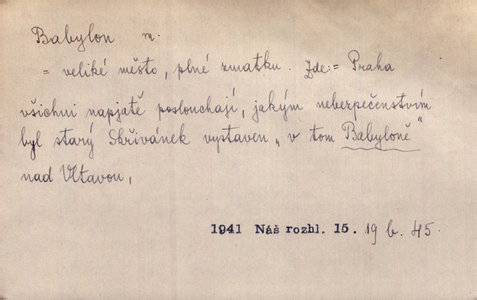 Babylon m.
= veliké město, plné zmatku. Zde:= Praha
všichni napjatě poslouchají, jakým nebezpečenstvím
byl starý Skřivánek vystaven „v tom Babyloně"
nad Vltavou,
1941 Náš rozhl. 15. 19 b. 45.